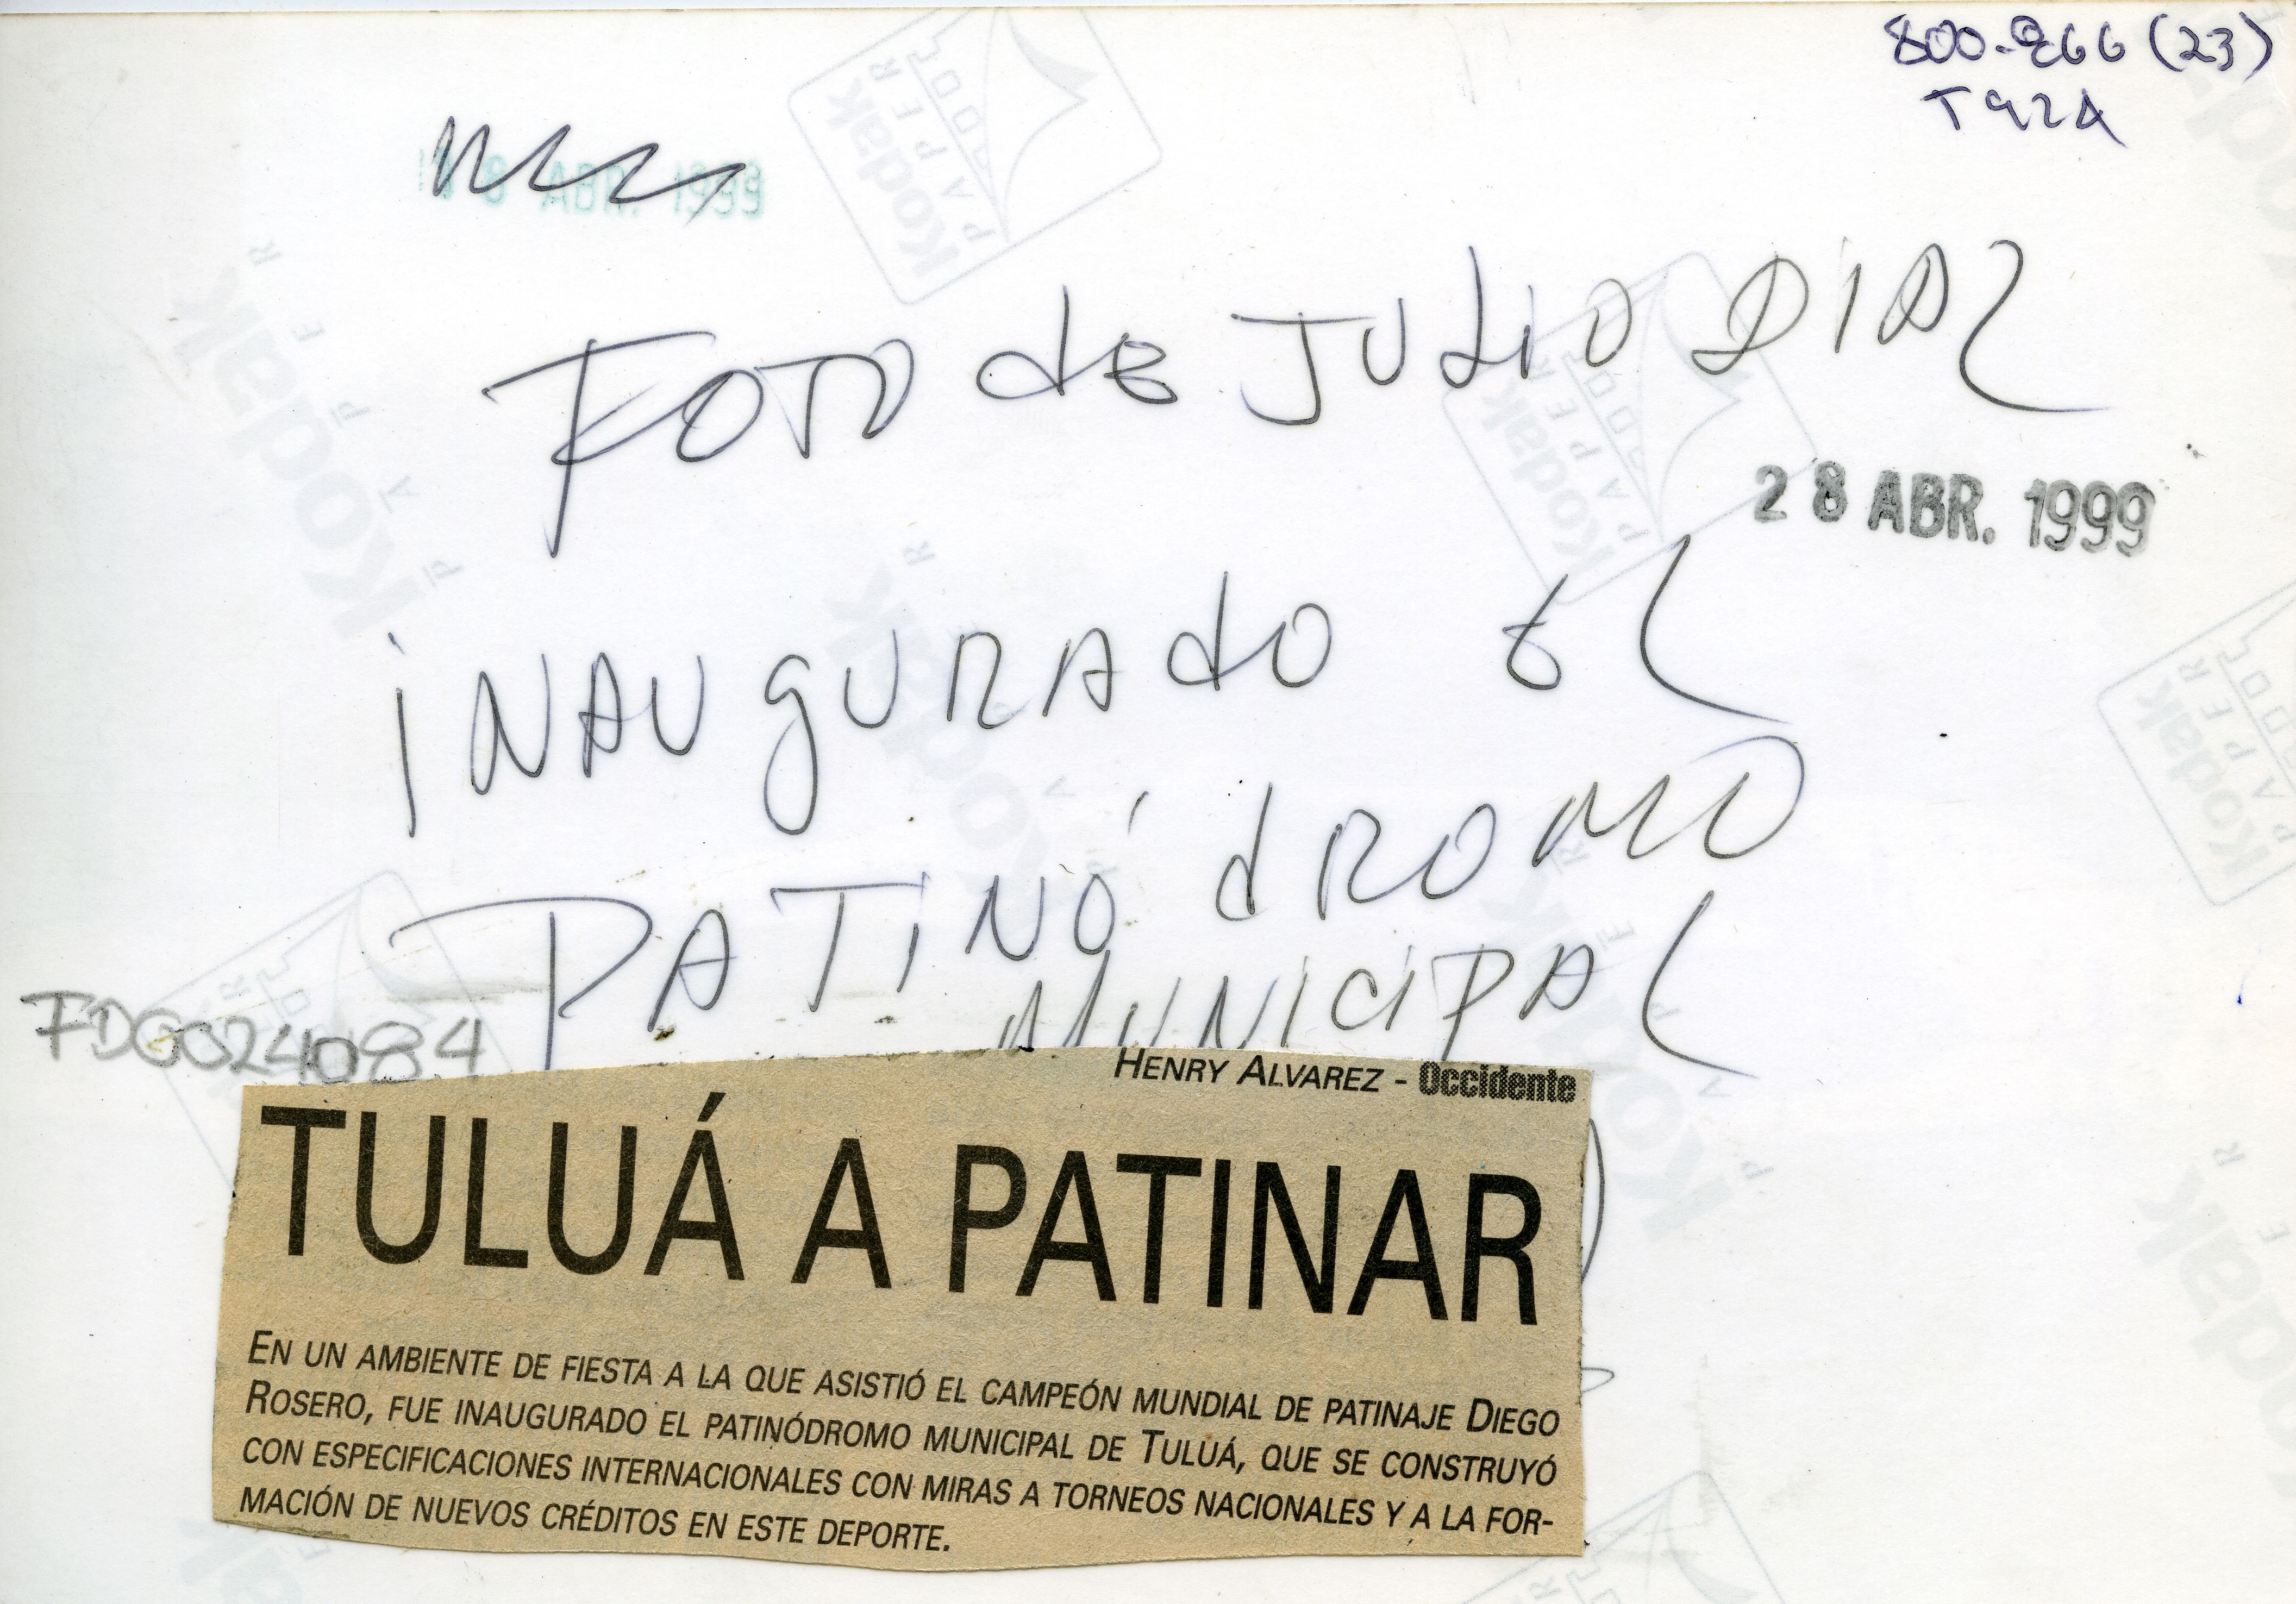 800-266 (23)
T92A
18 ABR. 1999
FOTO de JULIO DIAZ
28 ABR. 1999
iNAUgURAdO EL
PATiNÓdROMO
MUNICIPAL
FDG024084
HENRY ALVAREZ - Occidente
TULUÁ A PATINAR
EN UN AMBIENTE DE FIESTA A LA QUE ASISTIÓ EL CAMPEÓN MUNDIAL DE PATINAJE DIEGO
ROSERO, FUE INAUGURADO EL PATINÓDROMO MUNICIPAL DE TULUÁ, QUE SE CONSTRUYÓ
CON ESPECIFICACIONES INTERNACIONALES CON MIRAS A TORNEOS NACIONALES Y A LA FOR-
MACIÓN DE NUEVOS CRÉDITOS EN ESTE DEPORTE.